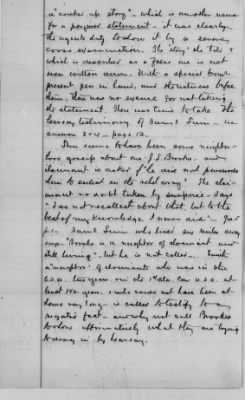 a "cooked up story" - which is another name
for a prepared statement - it was clearly
the agents duty to show it by a
cross examination. The story she tells
which is described as a "false" one is not
even written down. With a special
present, pen in hand, and instructions before
him, there was no excuse for not taking
the statement. There was time to take the
hearsay testimony of James Linn - see
answers 3+4 - page 12.
This seems to have been some neighbor-
hood gossip about one J. S. Brooks - and
claimant is asked if he did not persuade
him to enlist in the rebel army? The clai-
mant no doubt taken by surprise - says
"I do not recollect about that, but to the
best of my knowledge I never did" -
James Linn who lived six miles away
says "Brooks is a neighbor of claimant and
still living", but he is not called. - Smith
a "neighbor" of claimants who was in the
two years, in the 1st Ala. Cav. U.S.A. at
least one year, & who could not have been at
home very long - is called to testify to a
negative fact - and why not call Brooks
to show affirmatively what they are trying
to bring in by hearsay.